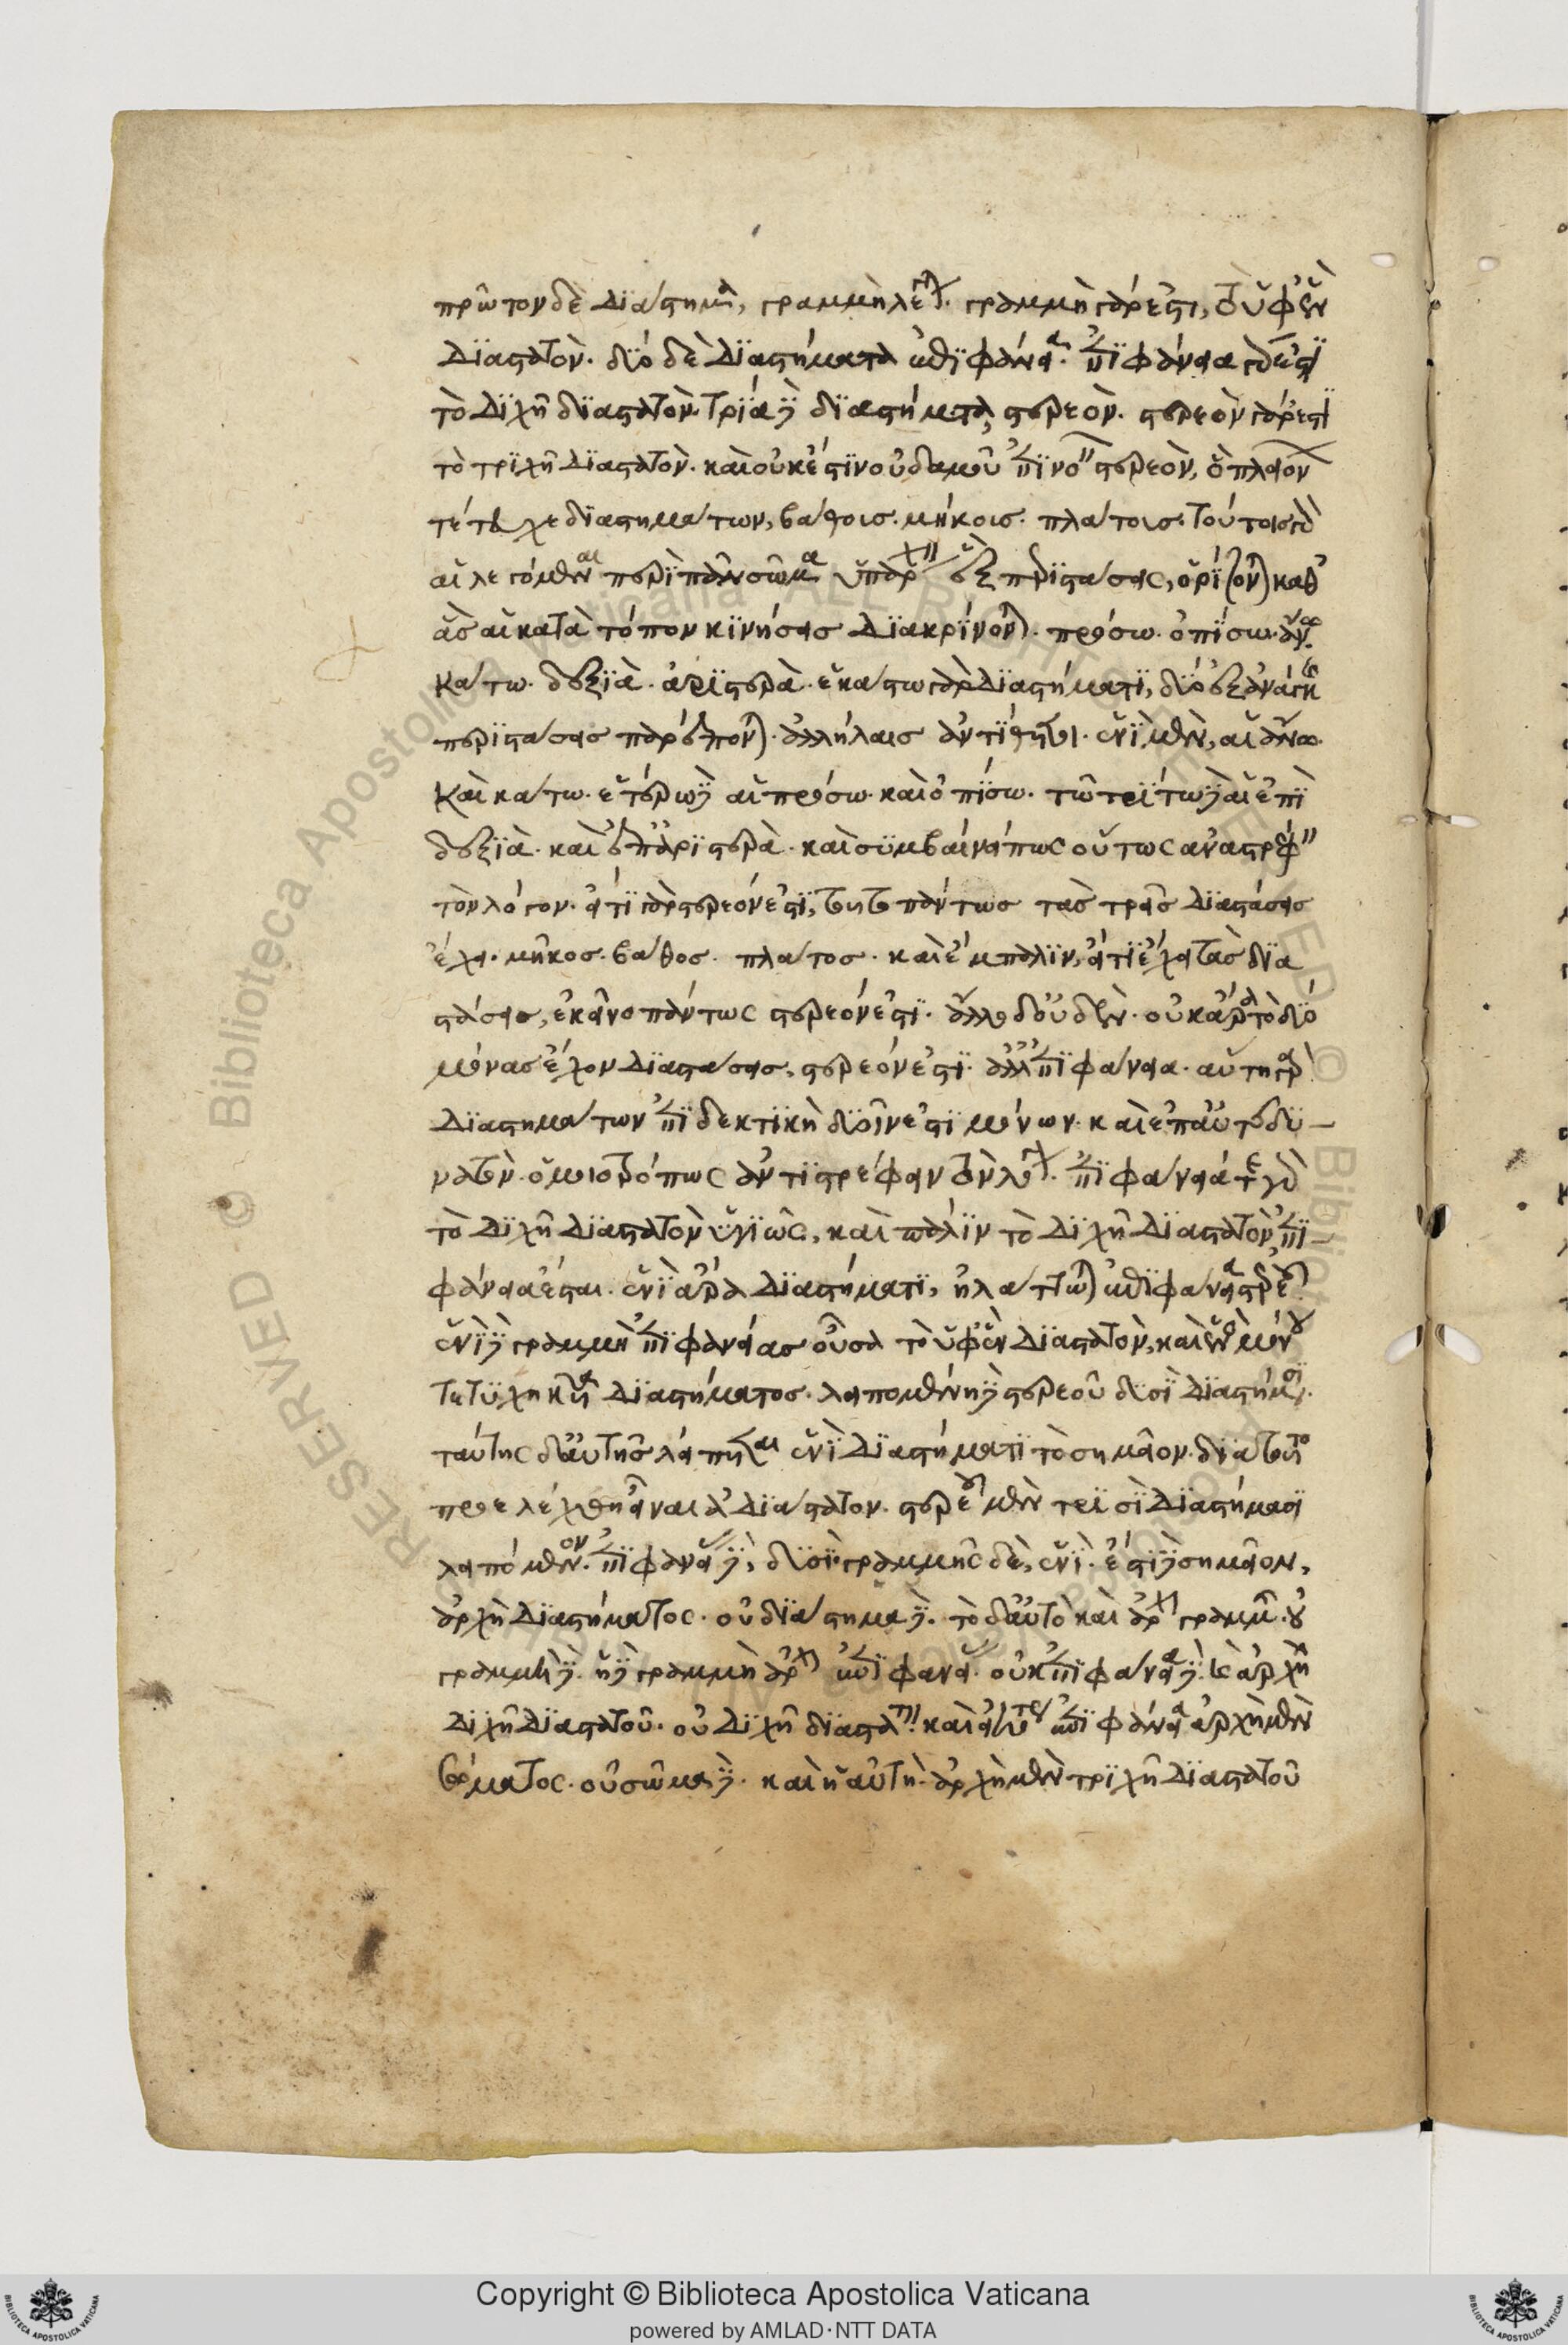 πρῶτον δὲ διάστημα, γραμμὴ λέγεται· γραμμὴ γάρ ἐστι, τὸ ὑφ' ἓν
διαστατόν· δύο δὲ διαστήματα ἐπιφάνεια· ἐπιφάνεια γάρ ἐστι
τὸ διχῆ διαστατόν· τρία δὲ διαστήματα, στερεόν· στερεὸν γάρ ἐστι
τὸ τριχῆ διαστατόν· καὶ οὐκ ἔστιν οὐδαμοῦ ἐπινοεῖν στερεὸν, ὃ πλειόνων
τέτευχε διαστημάτων, βάθους· μήκους· πλάτους· τούτοις γὰρ
αἱ λεγόμεναι περὶ πᾶν σῶμα ὑπάρχειν ἓξ περιστάσεις, ὁρίζονται καθ'
ἃς αἱ κατὰ τόπον κινήσεις διακρίνονται· πρόσω· ὀπίσω· ἄνω·
κάτω· δεξιὰ· ἀριστερὰ· ἑκάστω γὰρ διαστήματι, δύο ἐξ ἀνάγκης
περιστάσεις παρέπονται ἀλλήλαις ἀντίθετοι· ἑνὶ μὲν, αἱ ἄνω·
καὶ κάτω· ἑτέρω δὲ αἱ πρόσω· καὶ ὀπίσω· τῶ τρίτω δὲ αἱ ἐπὶ
δεξιὰ· καὶ ἐπ' ἀριστερὰ· καὶ συμβαίνει πως οὕτως ἀναστρέφειν
τὸν λόγον· εἴ τι γὰρ στερεόν ἐστι, τοῦτο πάντως τὰς τρεῖς διαστάσεις
ἔχει· μῆκος· βάθος· πλάτος· καὶ ἔμπαλιν, εἴ τι ἔχει τὰς δια
στάσεις, ἐκεῖνο πάντως στερεόν ἐστι· ἄλλο δ' οὐδέν· οὐκ ἄρα τὸ δύο
μόνας ἔχον διαστάσεις, στερεόν ἐστι· ἀλλ' ἐπιφάνεια· αὕτη γὰρ
διαστημάτων ἐπιδεκτικὴ δυοῖν ἐστι μόνων· καὶ ἐπ' αὐτοῦ δυ–
νατὸν ὁμοιοτρόπως ἀντιστρέφειν τὸν λόγον· ἐπιφάνειά τε γὰρ
τὸ διχῆ διαστατὸν ὑγιῶς, καὶ πάλιν τὸ διχῆ διαστατόν, ἐπι–
φάνεια ἔσται· ἑνὶ ἄρα διαστήματι, ἠλάττωται ἐπιφάνεια στερεοῦ·
ἑνὶ δὲ γραμμὴ ἐπιφανείας οὖσα τὸ ὑφ' ἓν διαστατὸν, καὶ ἑνὸς μόνου
τετυχηκυῖα διαστήματος· λειπομένη δὲ στερεοῦ δυσὶ διαστήμασι·
ταύτης δ' αὐτῆς λείπεται ἑνὶ διαστήματι τὸ σημεῖον· διὰ τοῦτο
προελέχθη εἶναι ἀδιάστατον· στερεοῦ μὲν τρισὶ διαστήμασι
λειπόμενον· ἐπιφανείας δὲ, δυσὶ· γραμμῆς δὲ, ἑνὶ· ἔστι δὲ σημεῖον,
ἀρχὴ διαστήματος· οὐ διάστημα δὲ· τὸ δ' αὐτὸ καὶ ἀρχὴ γραμμῆς· οὐ
γραμμὴ δὲ· ἡ δὲ γραμμὴ ἀρχὴ ἐπιφανείας· οὐκ ἐπιφάνεια δὲ· καὶ ἀρχὴ
διχῆ διαστατοῦ· οὐ διχῆ διαστατή· καὶ εἰκότως ἐπιφάνεια ἀρχὴ μὲν
σώματος· οὐ σῶμα δὲ· καὶ ἡ αὐτὴ ἀρχὴ μὲν τριχῆ διαστατοῦ
Copyright © Biblioteca Apostolica Vaticana
powered by AMLAD·NTT DATA